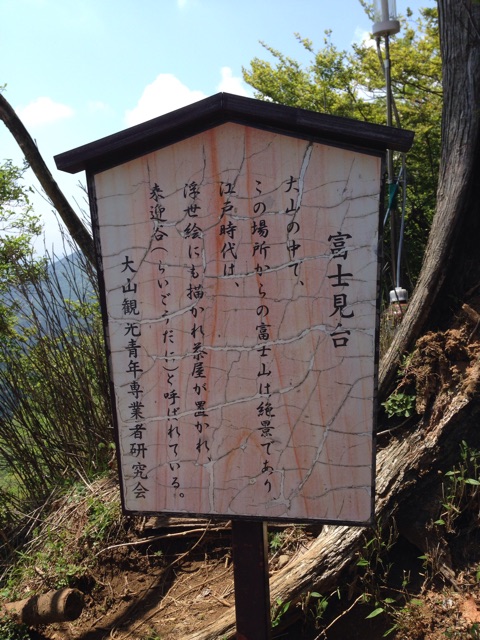 富士見台
大山の中で、
この場所からの富士山は絶景であり
江戸時代は、
浮世絵にも描かれ茶屋が置かれ、
来迎谷(らいごうだに)と呼ばれている。
大山観光青年専業者研究会